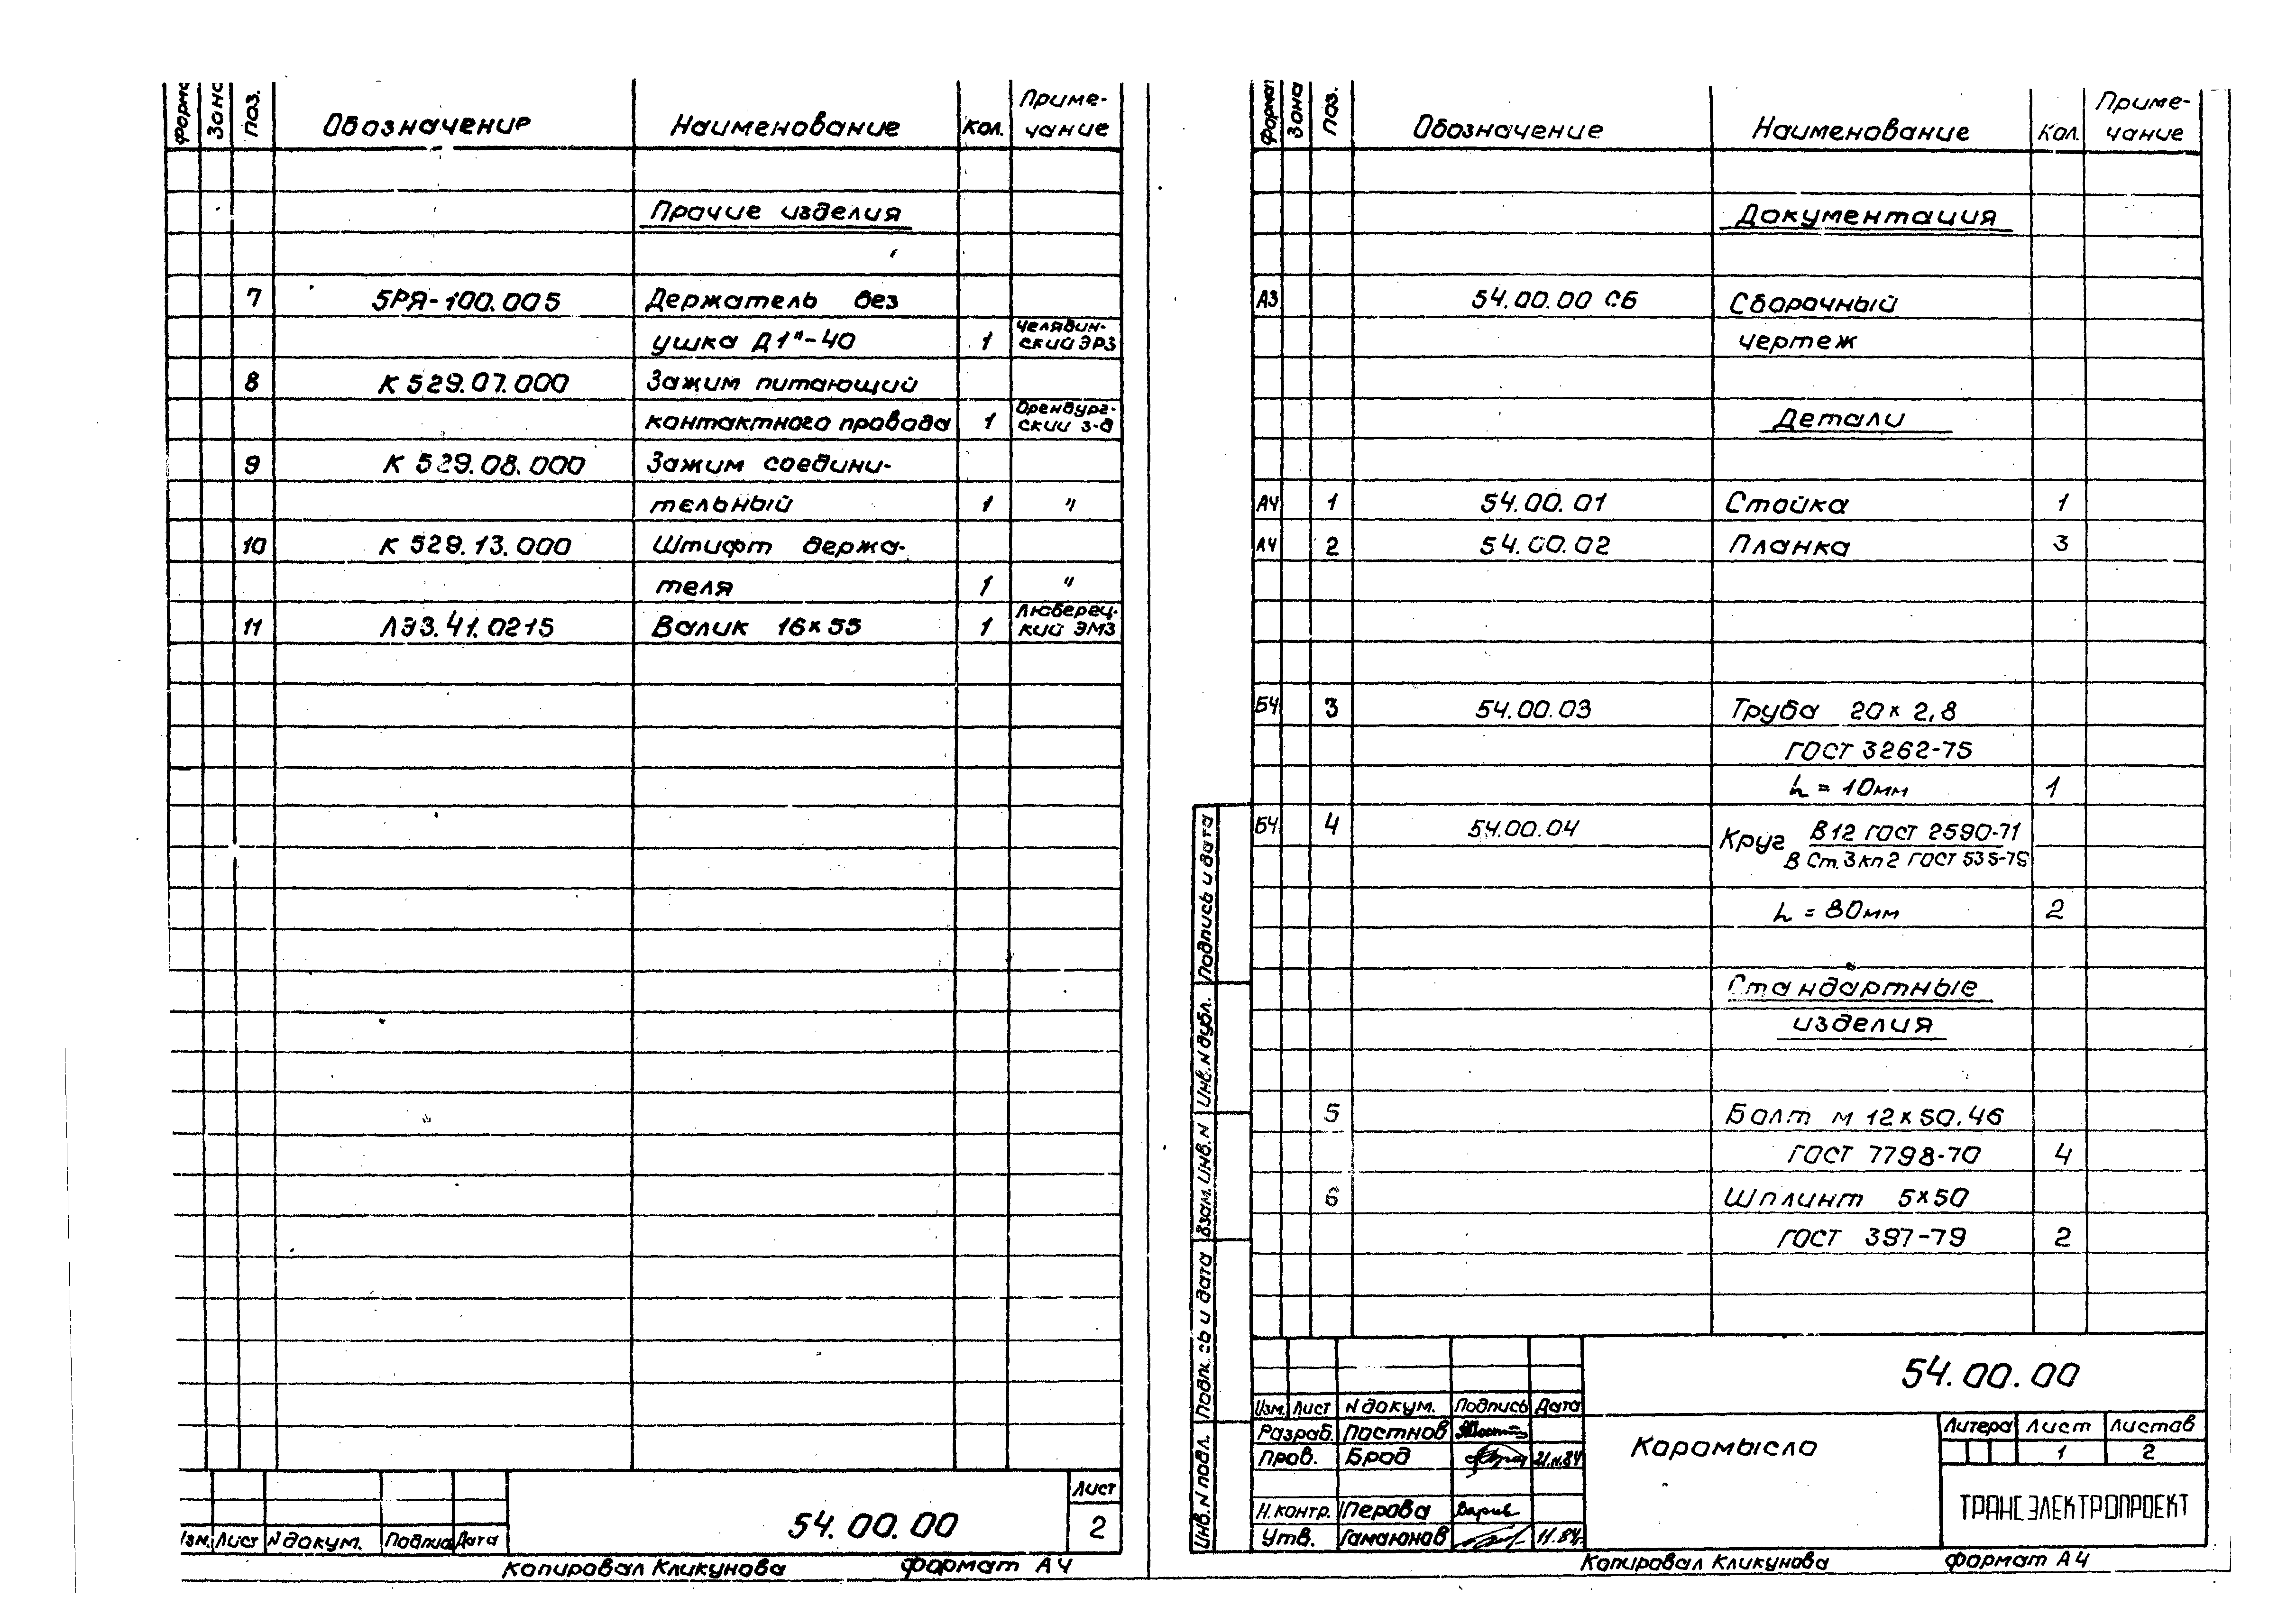 Форма Зона Поз. Обозначение Наименование Кол. Приме-
чание
Прочие изделия
7 5РЯ-100.005 Держатель без
ушка Д1"-40 1 Челябин-
ский ЭРЗ
8 К 529.07.000 Зажим питающий
контактного провода 1 Оренбург-
ский з-д
9 К 529.08.000 Зажим соедини-
тельный 1 "
10 К 529.13.000 Штифт держа-
теля 1 "
11 ЛЭЗ.41.0215 Валик 16×55 1 Люберец-
кий ЭМЗ
Изм. Лист N докум. Подпись Дата
54.00.00
Лист
2
Копировал Кликунова Формат А4
Формат Зона Поз. Обозначение Наименование Кол. Приме-
чание
Документация
А3 54.00.00 СБ Сборочный
чертеж
Детали
А4 1 54.00.01 Стойка 1
А4 2 54.00.02 Планка 3
БЧ 3 54.00.03 Труба 20×2,8
ГОСТ 3262-75
L = 10мм 1
БЧ 4 54.00.04 Круг В12 ГОСТ 2590-71
В Ст.3кп2 ГОСТ 535-79
L = 80мм 2
Стандартные
изделия
5 Болт М 12×50.46
ГОСТ 7798-70 4
6 Шплинт 5×50
ГОСТ 397-79 2
Инв. N подл. Подпись и дата Взам. Инв. N Инв. N дубл. Подпись и дата
54.00.00
Изм. Лист N докум. Подпись Дата
Разраб. Постнов
Пров. Брод 21.11.84
Н.контр. Перова
Утв. Гамаюнов 11.84г.
Коромысло
Литера Лист Листов
1 2
ТРАНСЭЛЕКТРОПРОЕКТ
Копировал Кликунова Формат А4